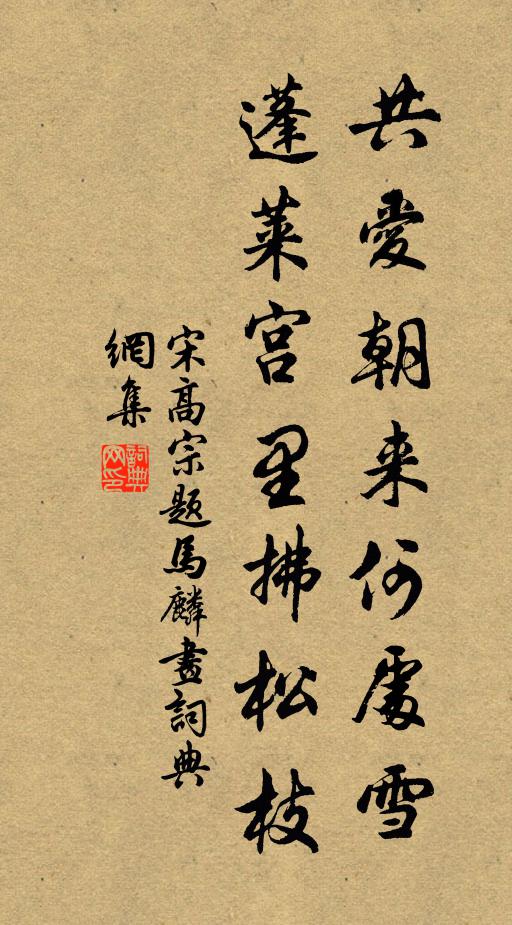 共愛朝来何處雪
蓬莱宫里拂松枝
宋高宗題馬麟畫詞典
網集
詞典
网印